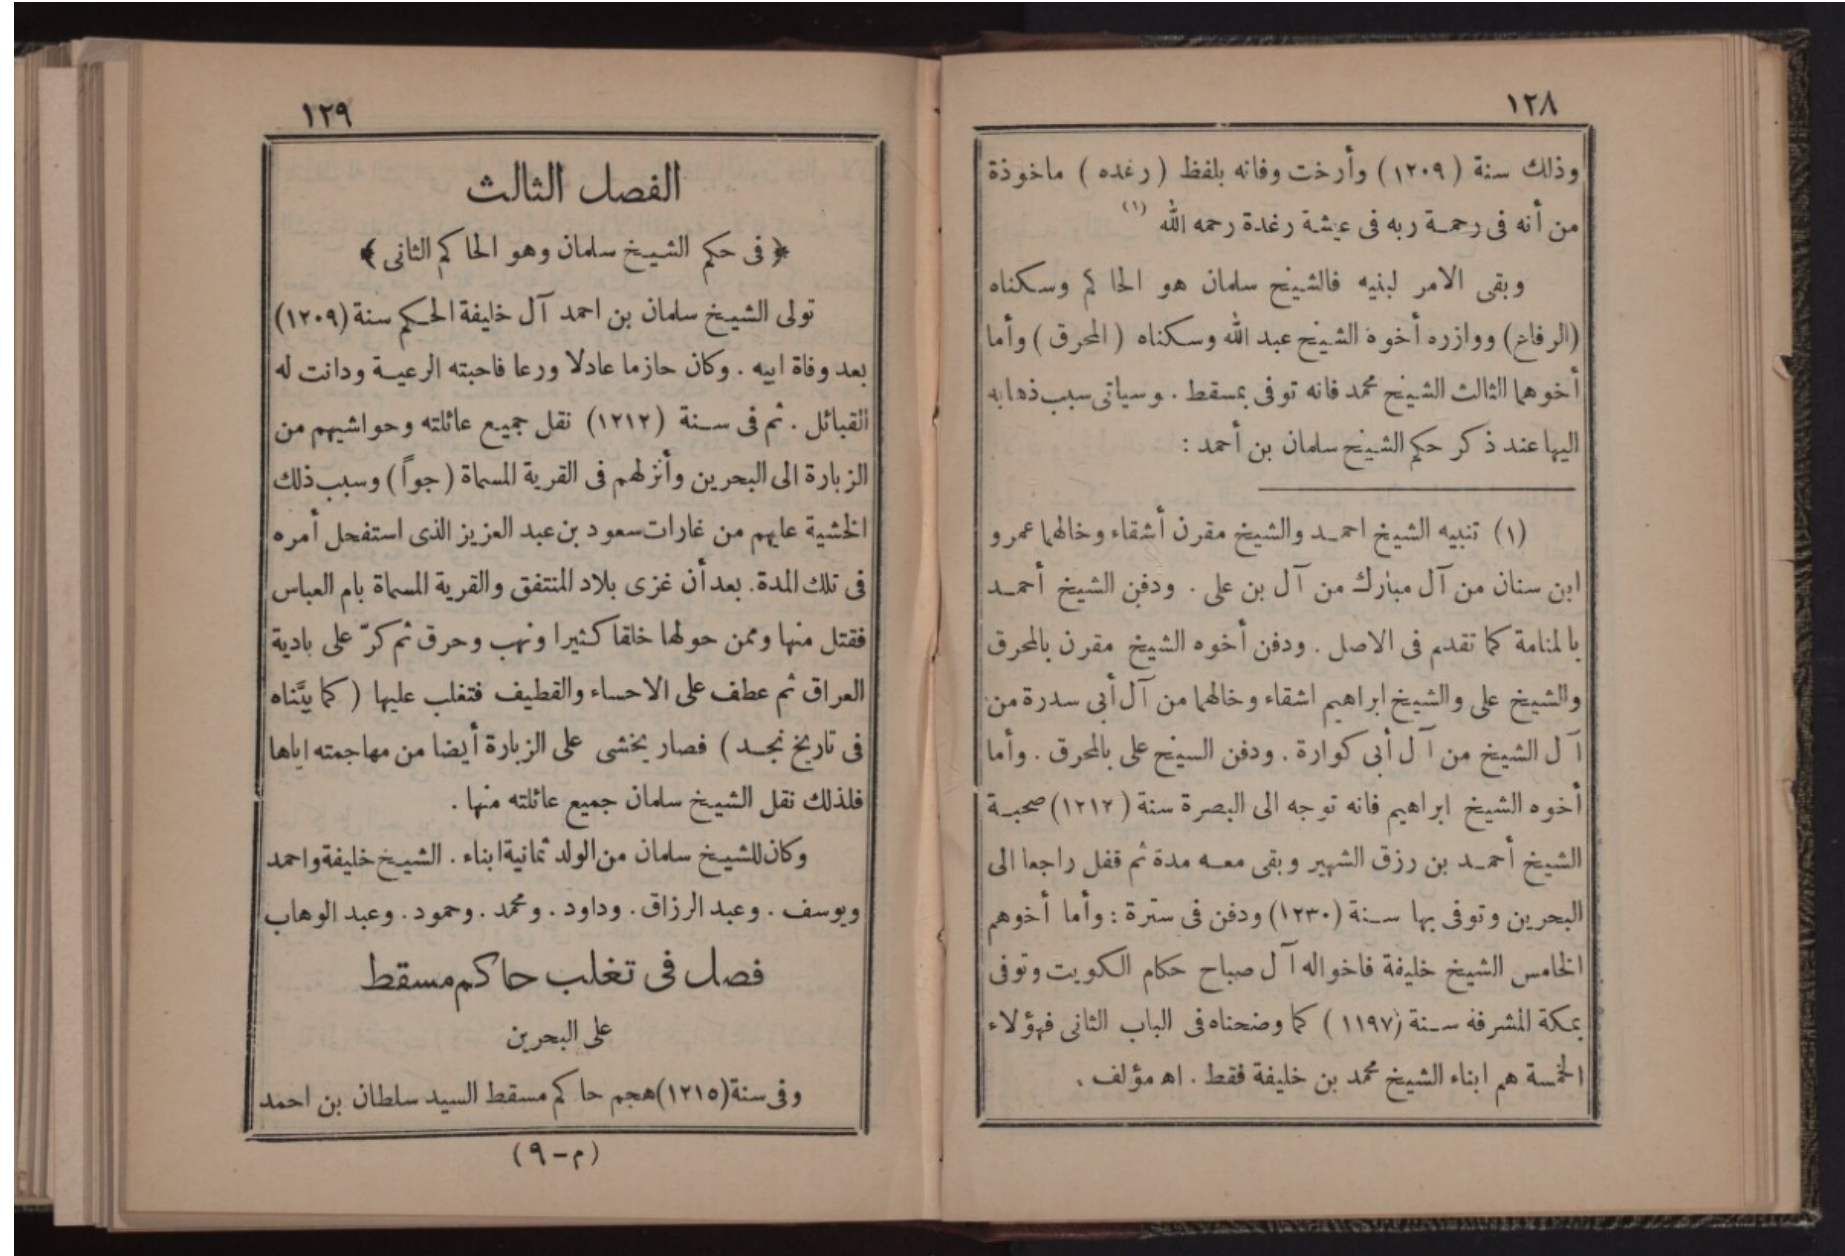 ١٢٨
وذلك سنة (١٢٠٩) وأرخت وفاته بلفظ (رغده) ماخوذة
من أنه فى رحمة ربه فى عيشة رغدة رحمه الله (١)
وبقى الامر لبنيه فالشيخ سلمان هو الحاكم وسكناه
(الرفاع) ووازره أخوه الشيخ عبد الله وسكناه (المحرق) وأما
أخوهما الثالث الشيخ محمد فانه توفى بمسقط . وسياتى سبب ذهابه
اليها عند ذكر حكم الشيخ سلمان بن أحمد :
(١) تنبيه الشيخ احمد والشيخ مقرن أشقاء وخالهما عمرو
ابن سنان من آل مبارك من آل بن على . ودفن الشيخ أحمد
بالمنامة كما تقدم فى الاصل . ودفن أخوه الشيخ مقرن بالمحرق
والشيخ على والشيخ ابراهيم اشقاء وخالهما من آل أبى سدرة من
آل الشيخ من آل أبى كوارة . ودفن السيخ على بالمحرق . وأما
أخوه الشيخ ابراهيم فانه توجه الى البصرة سنة (١٢١٢) صحبة
الشيخ أحمد بن رزق الشهير وبقى معه مدة ثم قفل راجعا الى
البحرين وتوفى بها سنة (١٢٣٠) ودفن فى سترة : وأما أخوهم
الخامس الشيخ خليفة فاخواله آل صباح حكام الكويت وتوفى
بمكة المشرفة سنة (١١٩٧) كما وضحناه فى الباب الثانى فهؤلاء
الخمسة هم ابناء الشيخ محمد بن خليفة فقط . اه مؤلف .
١٢٩
الفصل الثالث
﴿ فى حكم الشيخ سلمان وهو الحاكم الثانى ﴾
تولى الشيخ سلمان بن احمد آل خليفة الحكم سنة (١٢٠٩)
بعد وفاة ابيه . وكان حازما عادلا ورعا فاحبته الرعية ودانت له
القبائل . ثم فى سنة (١٢١٢) نقل جميع عائلته وحواشيهم من
الزبارة الى البحرين وأنزلهم فى القرية المسماة (جواً) وسبب ذلك
الخشية عليهم من غارات سعود بن عبد العزيز الذى استفحل أمره
فى تلك المدة. بعد أن غزى بلاد المنتفق والقرية المسماة بام العباس
فقتل منها وممن حولها خلقا كثيرا ونهب وحرق ثم كرّ على بادية
العراق ثم عطف على الاحساء والقطيف فتغلب عليها (كما بيَّناه
فى تاريخ نجد) فصار يخشى على الزبارة أيضا من مهاجمته اياها
فلذلك نقل الشيخ سلمان جميع عائلته منها .
وكان للشيخ سلمان من الولد ثمانية ابناء . الشيخ خليفة واحمد
ويوسف . وعبد الرزاق . وداود . ومحمد . وحمود . وعبد الوهاب
فصل فى تغلب حاكم مسقط
على البحرين
وفى سنة (١٢١٥) هجم حاكم مسقط السيد سلطان بن احمد
(م - ٩)